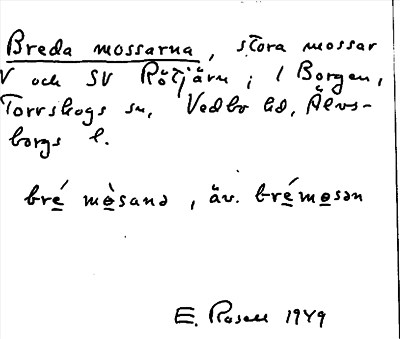 Breda mossarna, stora mossar
V och SV Rötjärn i l Borgen,
Torrskogs sn, Vedbo hd, Älvs-
borgs l.
bré mòsanə, äv. brémosən
E. Rosell 1949